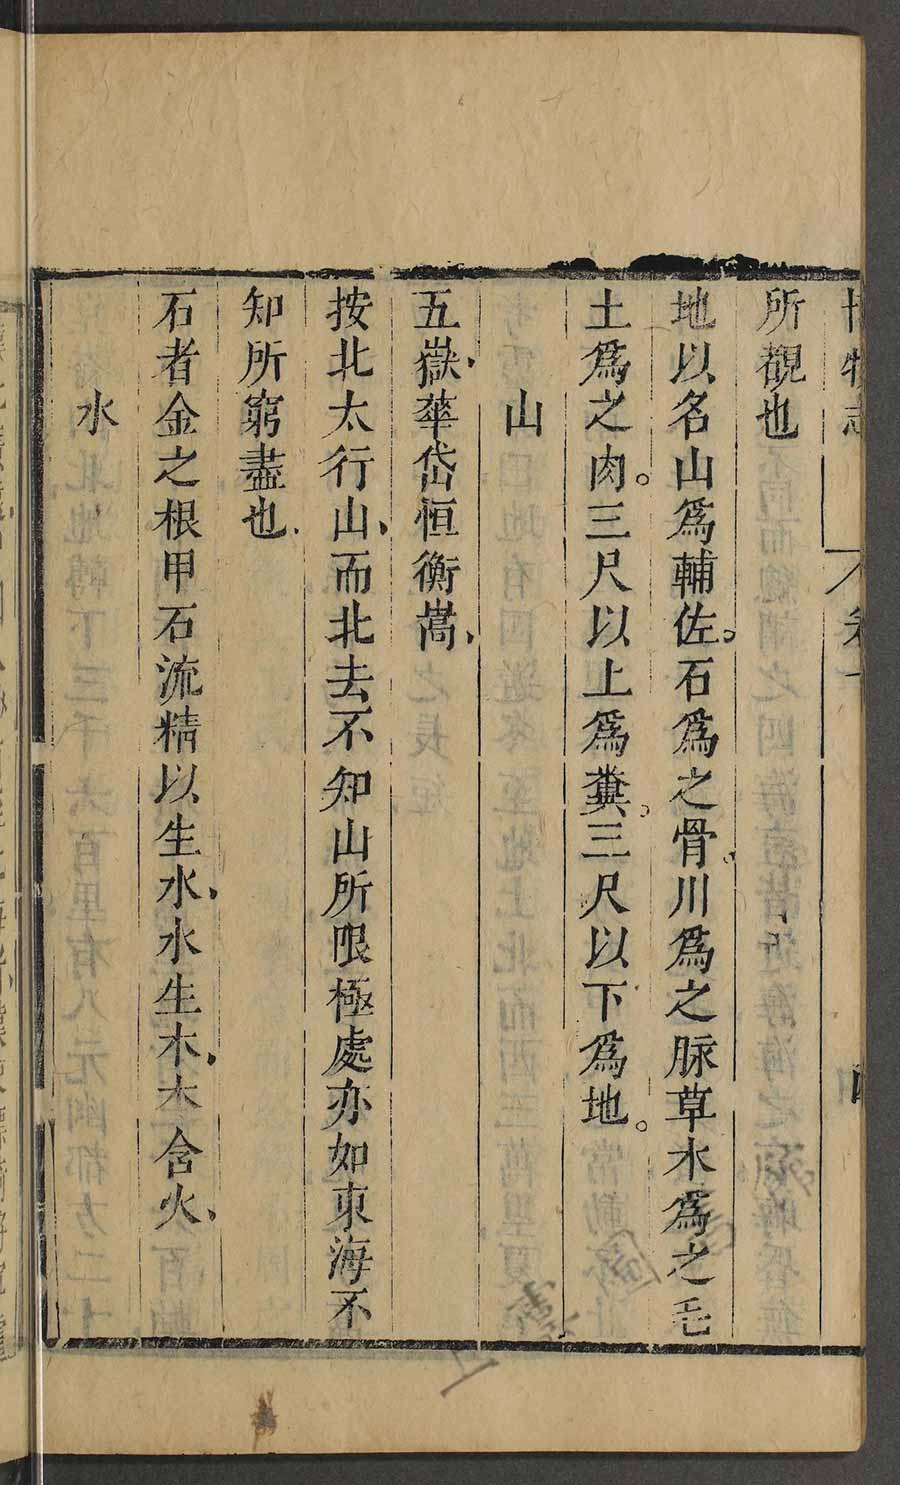 博物志 卷一 四
所觀也
地以名山爲輔佐。石爲之骨、川爲之脉草木爲之毛
土爲之肉。三尺以上爲糞。三尺以下爲地。
山
五嶽、華岱恒衡嵩、
按北太行山、而北去不知山所限極處亦如東海不
知所窮盡也、
石者金之根甲石流精以生水、水生木、木含火、
水